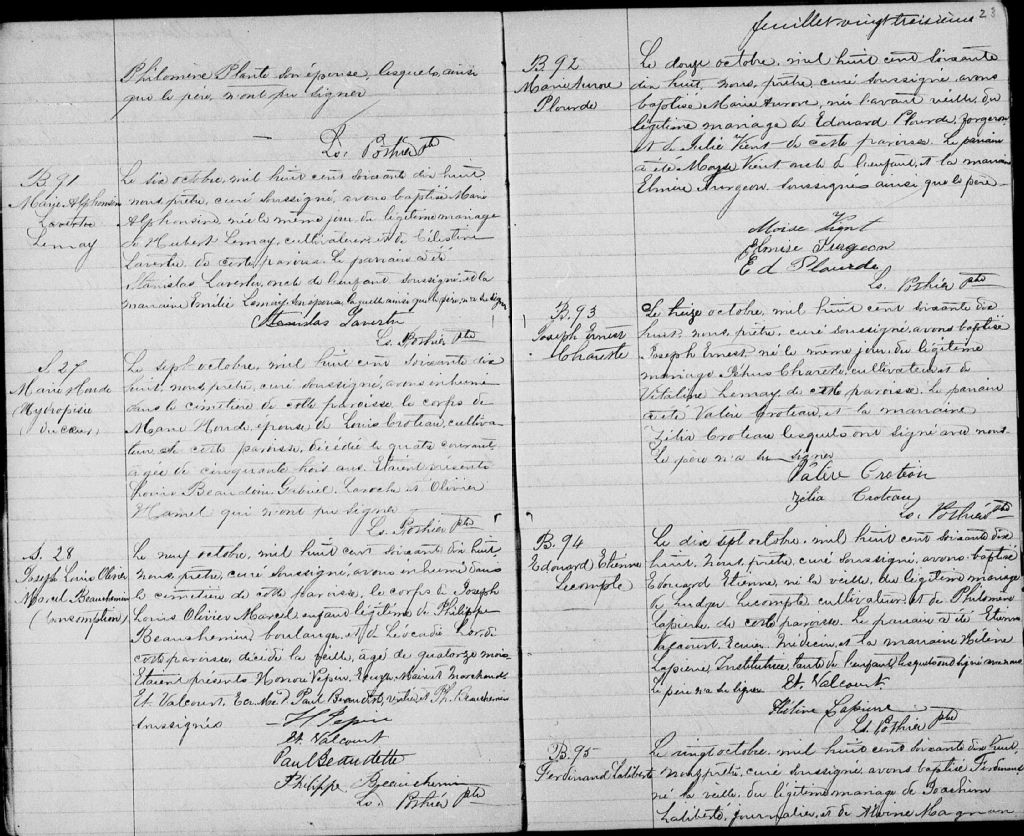 Philomène Plante son épouse, lesquels, ainsi
que le père, n'ont pu signer
Ls. Pothier Ptre
B. 91
Marie Alphonsine
Lavertu
Lemay
Le six octobre, mil huit cent soixante dix huit
nous, prêtre, curé soussigné, avons baptisé Marie
Alphonsine née le même jour, du légitime mariage
de Hubert Lemay, cultivateur, et de Célestine
Lavertu, de cette paroisse. Le parrain a été
Stanislas Lavertu, oncle de l'enfant soussigné, et la
marraine Emilie Lemay, son épouse, laquelle ainsi que le père, n'a su signer
Stanislas Lavertu
Ls. Pothier Ptre
S. 27
Marie Houde
(Hydropisie
du cœur)
Le sept octobre, mil huit cent soixante dix
huit, nous, prêtre, curé soussigné, avons inhumé
dans le cimetière de cette paroisse, le corps de
Marie Houde, épouse de Louis Croteau, cultiva-
teur de cette paroisse, décédée le quatre courant,
agée de cinquante trois ans. Etaient présents
Louis Beaudoin, Gabriel Laroche et Olivier
Hamel qui n'ont pu signer
Ls. Pothier Ptre
S. 28
Joseph Louis Olivier
Marcel Beauchemin
(Consomption)
Le neuf octobre, mil huit cent soixante dix huit,
nous, prêtre, curé soussigné, avons inhumé dans
le cimetière de cette paroisse, le corps de Joseph
Louis Olivier Marcel enfant légitime de Philippe
Beauchemin, boulanger, et de Léocadie Lord, de
cette paroisse, décédé la veille, agé de quatorze mois.
Etaient présents Honoré Pépin, Ecuyer, Marchand
Et. Valcourt, Ecr. M.D. Paul Beaudet, et Ph. Beauchemin
soussignés
H Pepin
Et. Valcourt
Paul Beaudette
Philippe Beauchemin
Ls. Pothier Ptre
feuillet vingt troisième 23
B. 92
Marie Aurore
Plourde
Le douze octobre, mil huit cent soixante
dix huit, nous, prêtre, curé soussigné, avons
baptisé Marie Aurore, née l'avant veille, du
légitime mariage de Edouard Plourde, forgeron
et de Julie Vient de cette paroisse. Le parrain
a été Moyse Vient oncle de l'enfant, et la marraine
Elmire Turgeon, soussignés ainsi que le père
Moïse Vient
Elmise Turgeon
E d Plourde
Ls. Pothier Ptre
B. 93
Joseph Ernest
Charette
Le treize octobre, mil huit cent soixante dix
huit, nous, prêtre, curé soussigné, avons baptisé
Joseph Ernest né le même jour, du légitime
mariage Charette, cultivateur et de
Vitaline Lemay, de cette paroisse. Le parrain
a été Valère Croteau, et la marraine
Zélia Croteau lesquels ont signé avec nous.
Le père n'a su signer
Valère Croteau
Zélia Croteau
Ls. Pothier Ptre
B. 94
Edouard Etienne
Lecompte
Le dix sept octobre, mil huit cent soixante dix
huit, nous, prêtre, curé soussigné, avons baptisé
Edouard Etienne, né la veille, du légitime mariage
de Ludger Lecompte, cultivateur, et de Philomène
Lapierre, de cette paroisse. Le parrain a été Etienne
Valcourt, Ecuier, Médecin, et la marraine Hélène
Lapierre, Institutrice, tante de l'enfant, lesquels ont signé avec nous
Le père n'a su signer Et. Valcourt
Hélène Lapierre
Ls. Pothier Ptre
B. 95
Ferdinand Laliberté
Le vingt octobre, mil huit cent soixante dix huit,
nous prêtre, curé soussigné, avons baptisé Ferdinand
né la veille, du légitime mariage de Joachim
Laliberté, journalier, et de Magnan